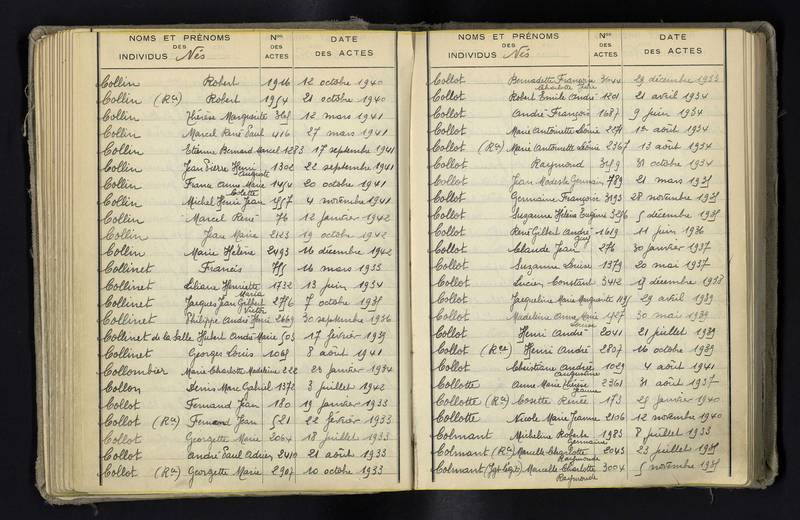 NOMS ET PRÉNOMS DES INDIVIDUS Nés
Nos DES ACTES
DATE DES ACTES
Collin Robert 1916 12 octobre 1940
Collin (Ron) Robert 1954 21 octobre 1940
Collin Thérèse Marguerite 12 mars 1941
Collin Marcel René Paul 416 27 mars 1941
Collin Etienne Bernard Marcel 1283 17 septembre 1941
Collin Jean Pierre Henri Auguste 1302 22 septembre 1941
Collin France Anne Marie Colette 1454 20 octobre 1941
Collin Michel Henri Jean 1557 4 novembre 1941
Collin Marcel René 76 12 janvier 1942
Collin Jean Marie 2123 19 octobre 1942
Collin Marie Hélène 2493 16 décembre 1942
Collinet Francis 775 16 mars 1933
Collinet Liliane Henriette Maria 1732 13 juin 1934
Collinet Jacques Jean Gilbert Victor 2776 7 octobre 1935
Collinet Philippe André Marie 2669 30 septembre 1936
Collinet de la Salle Hubert André Marie 503 17 février 1939
Collinet Georges Louis 1065 8 août 1941
Collombier Marie Charlotte Madeleine 222 25 janvier 1934
Collon Denis Marc Gabriel 1372 3 juillet 1942
Collot Fernand Jean 180 19 janvier 1933
Collot Fernand Jean 521 22 février 1933
Collot Georgette Marie 2064 18 juillet 1933
Collot André Paul Adrien 2410 21 août 1933
Collot Georgette Marie 2907 10 octobre 1933
NOMS ET PRÉNOMS DES INDIVIDUS Nés
Nos DES ACTES
DATE DES ACTES
Collot Bernadette Françoise Charlotte 3644 29 décembre 1933
Collot Robert Emile André 1201 21 avril 1934
Collot André François 1687 9 juin 1934
Collot Marie Antoinette Léonie 2271 1er août 1934
Collot Marie Antoinette Léonie 2367 13 août 1934
Collot Raymond 3159 31 octobre 1934
Collot Jean Modeste Germain 789 21 mars 1935
Collot Germaine Françoise 3193 28 novembre 1935
Collot Suzanne Hélène Eugénie 3276 5 décembre 1935
Collot René Gilbert André Guy 1619 11 juin 1936
Collot Claude Jean 276 30 janvier 1937
Collot Suzanne Louise 1379 20 mai 1937
Collot Lucien Constant 3412 19 décembre 1938
Collot Jacqueline Marie Marguerite 1195 29 avril 1939
Collot Madeleine Anne Marie Louise 1527 30 mai 1939
Collot Henri André 2041 21 juillet 1939
Collot Henri André 2807 16 octobre 1939
Collot Christiane Andrée Augustine 1029 4 août 1941
Collotte Anne Marie Thérèse Jeanne 2361 31 août 1937
Collotte Cosette Renée 173 29 janvier 1940
Collotte Nicole Marie Jeanne 2106 12 novembre 1940
Colmant Micheline Roberte Germaine 1983 8 juillet 1933
Colmant Marcelle Charlotte Raymonde 2043 23 juillet 1935
Colmant Marcelle Charlotte Raymonde 3004 5 novembre 1935